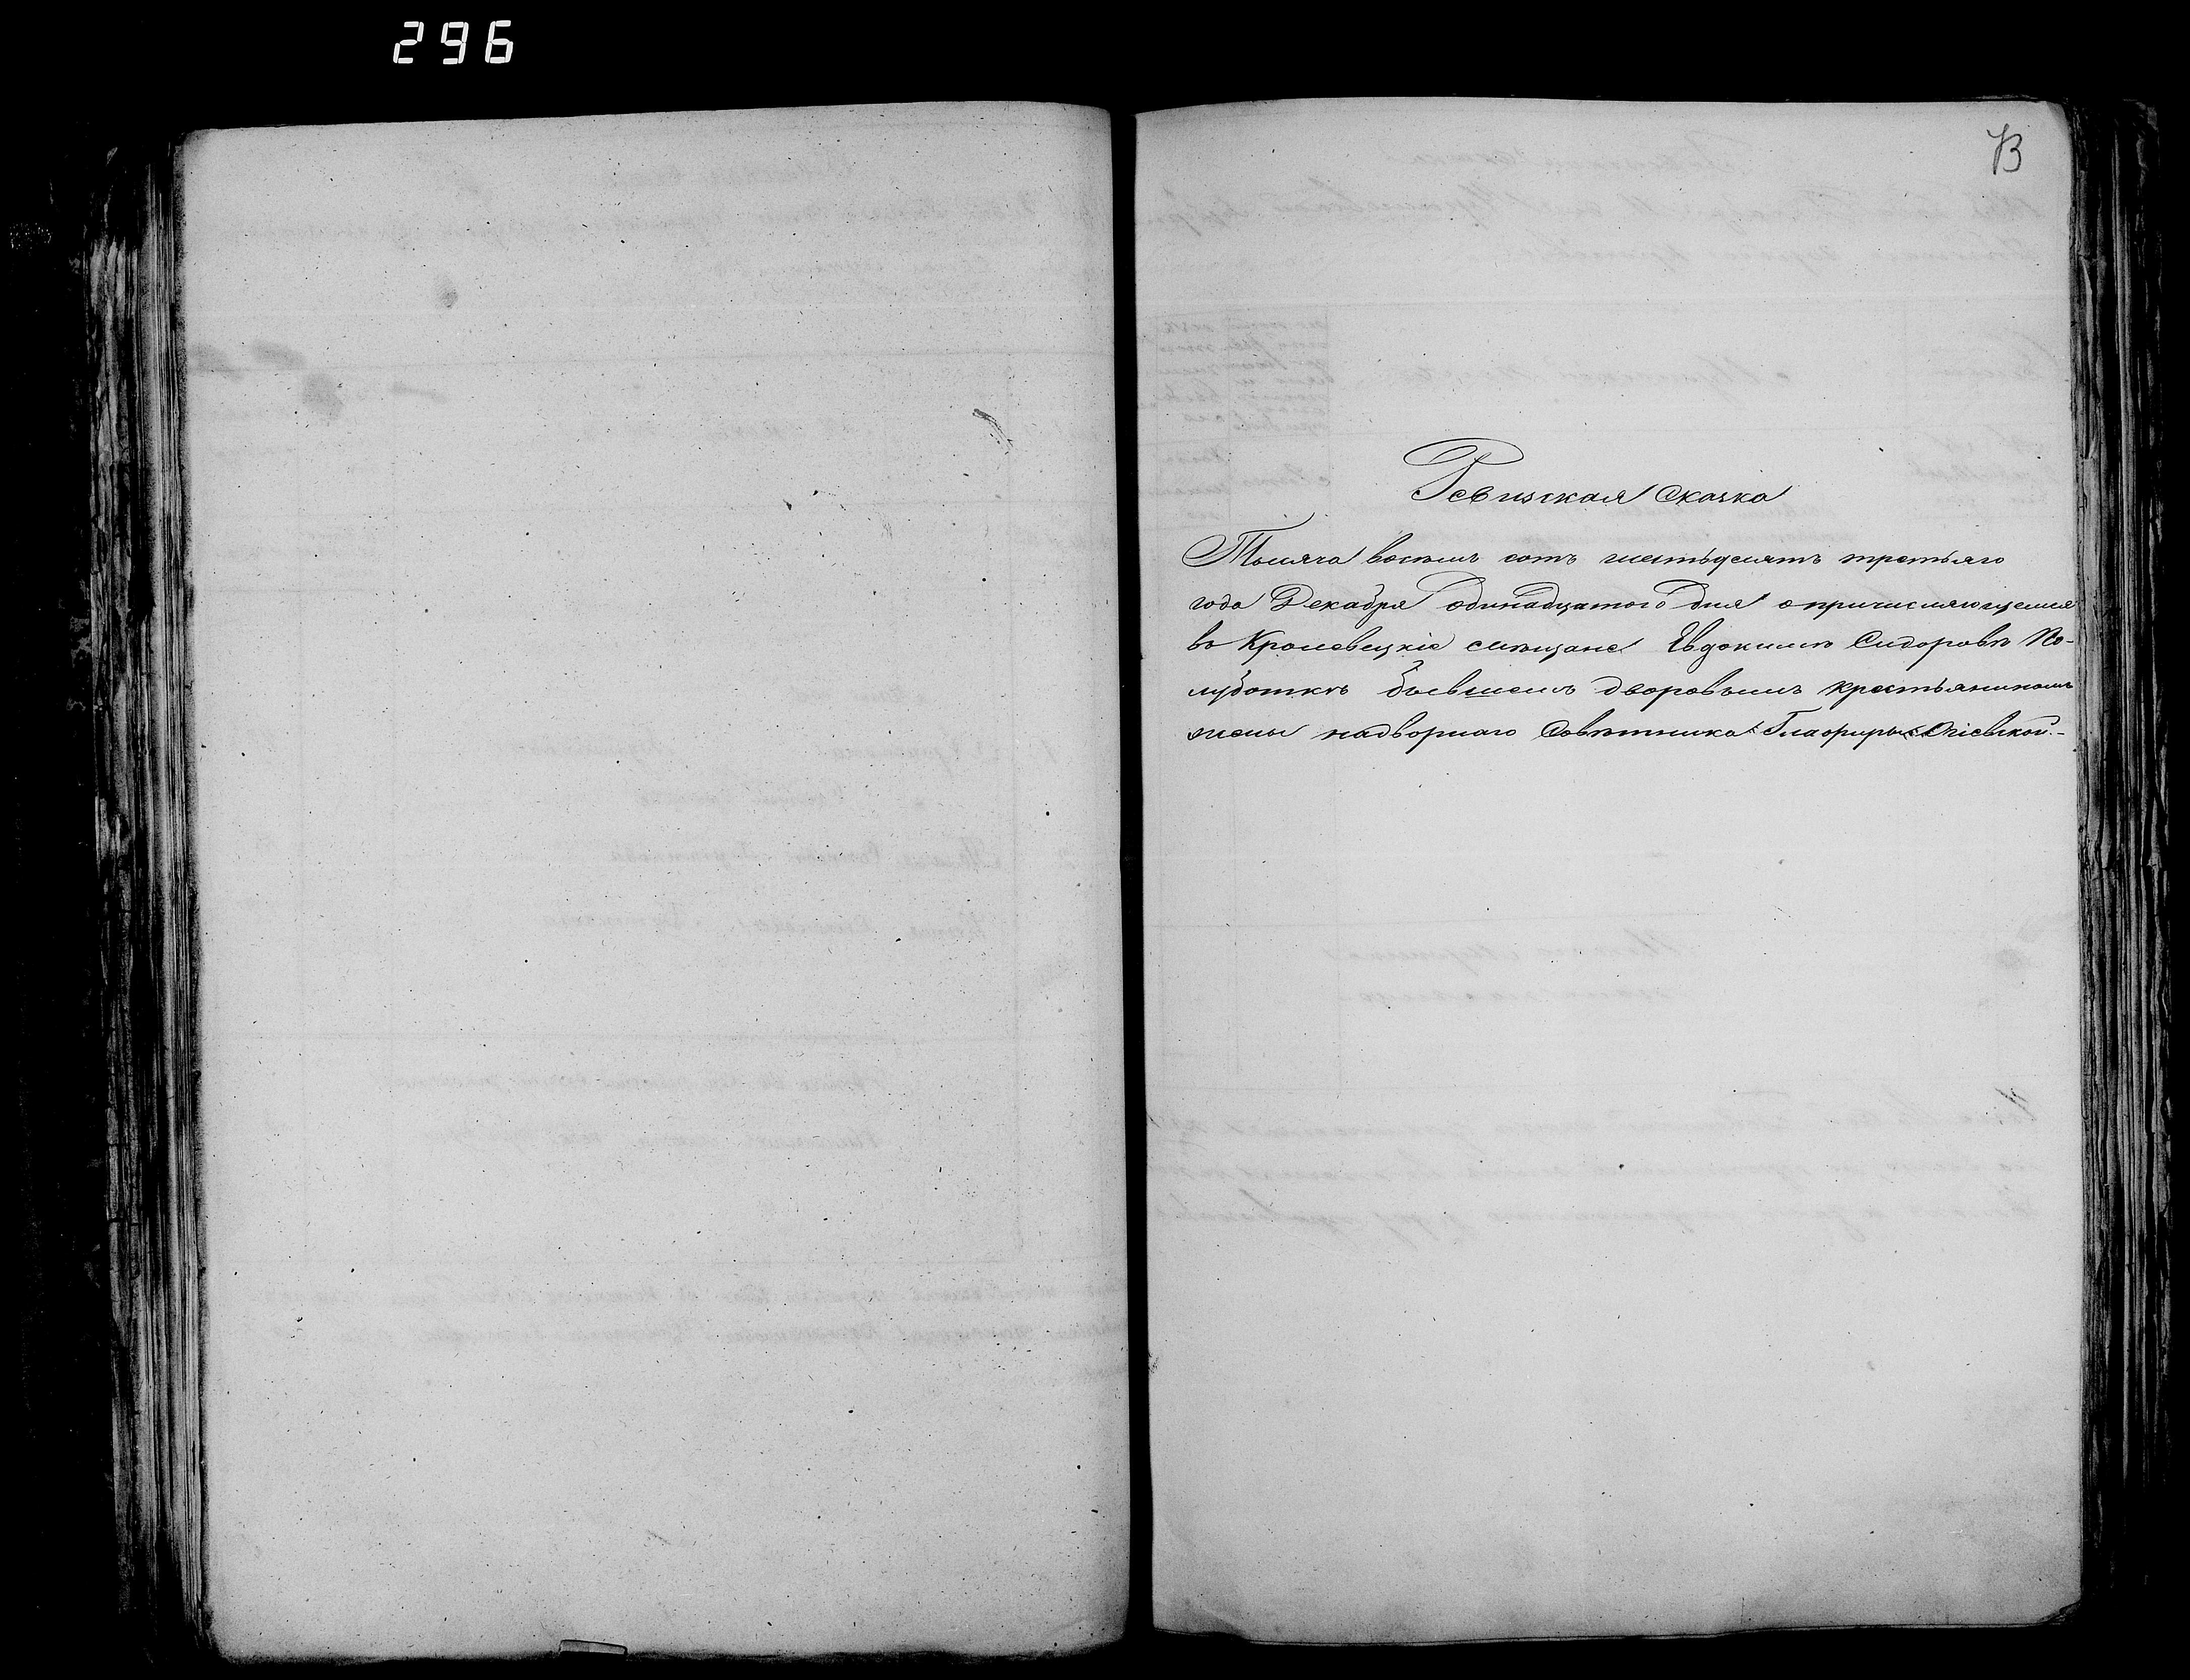 296
73
Ревизская Сказка
Тысяча восемь сотъ шестьдесятъ третьяго
года Декабря одинадцатого дня о причисляющемся
въ Кролевецкіе мѣщане Евдокимъ Сидоровъ По-
луботкъ бывшемъ дворовымъ крестьяниномъ
жены надворнаго Совѣтника Глафиры